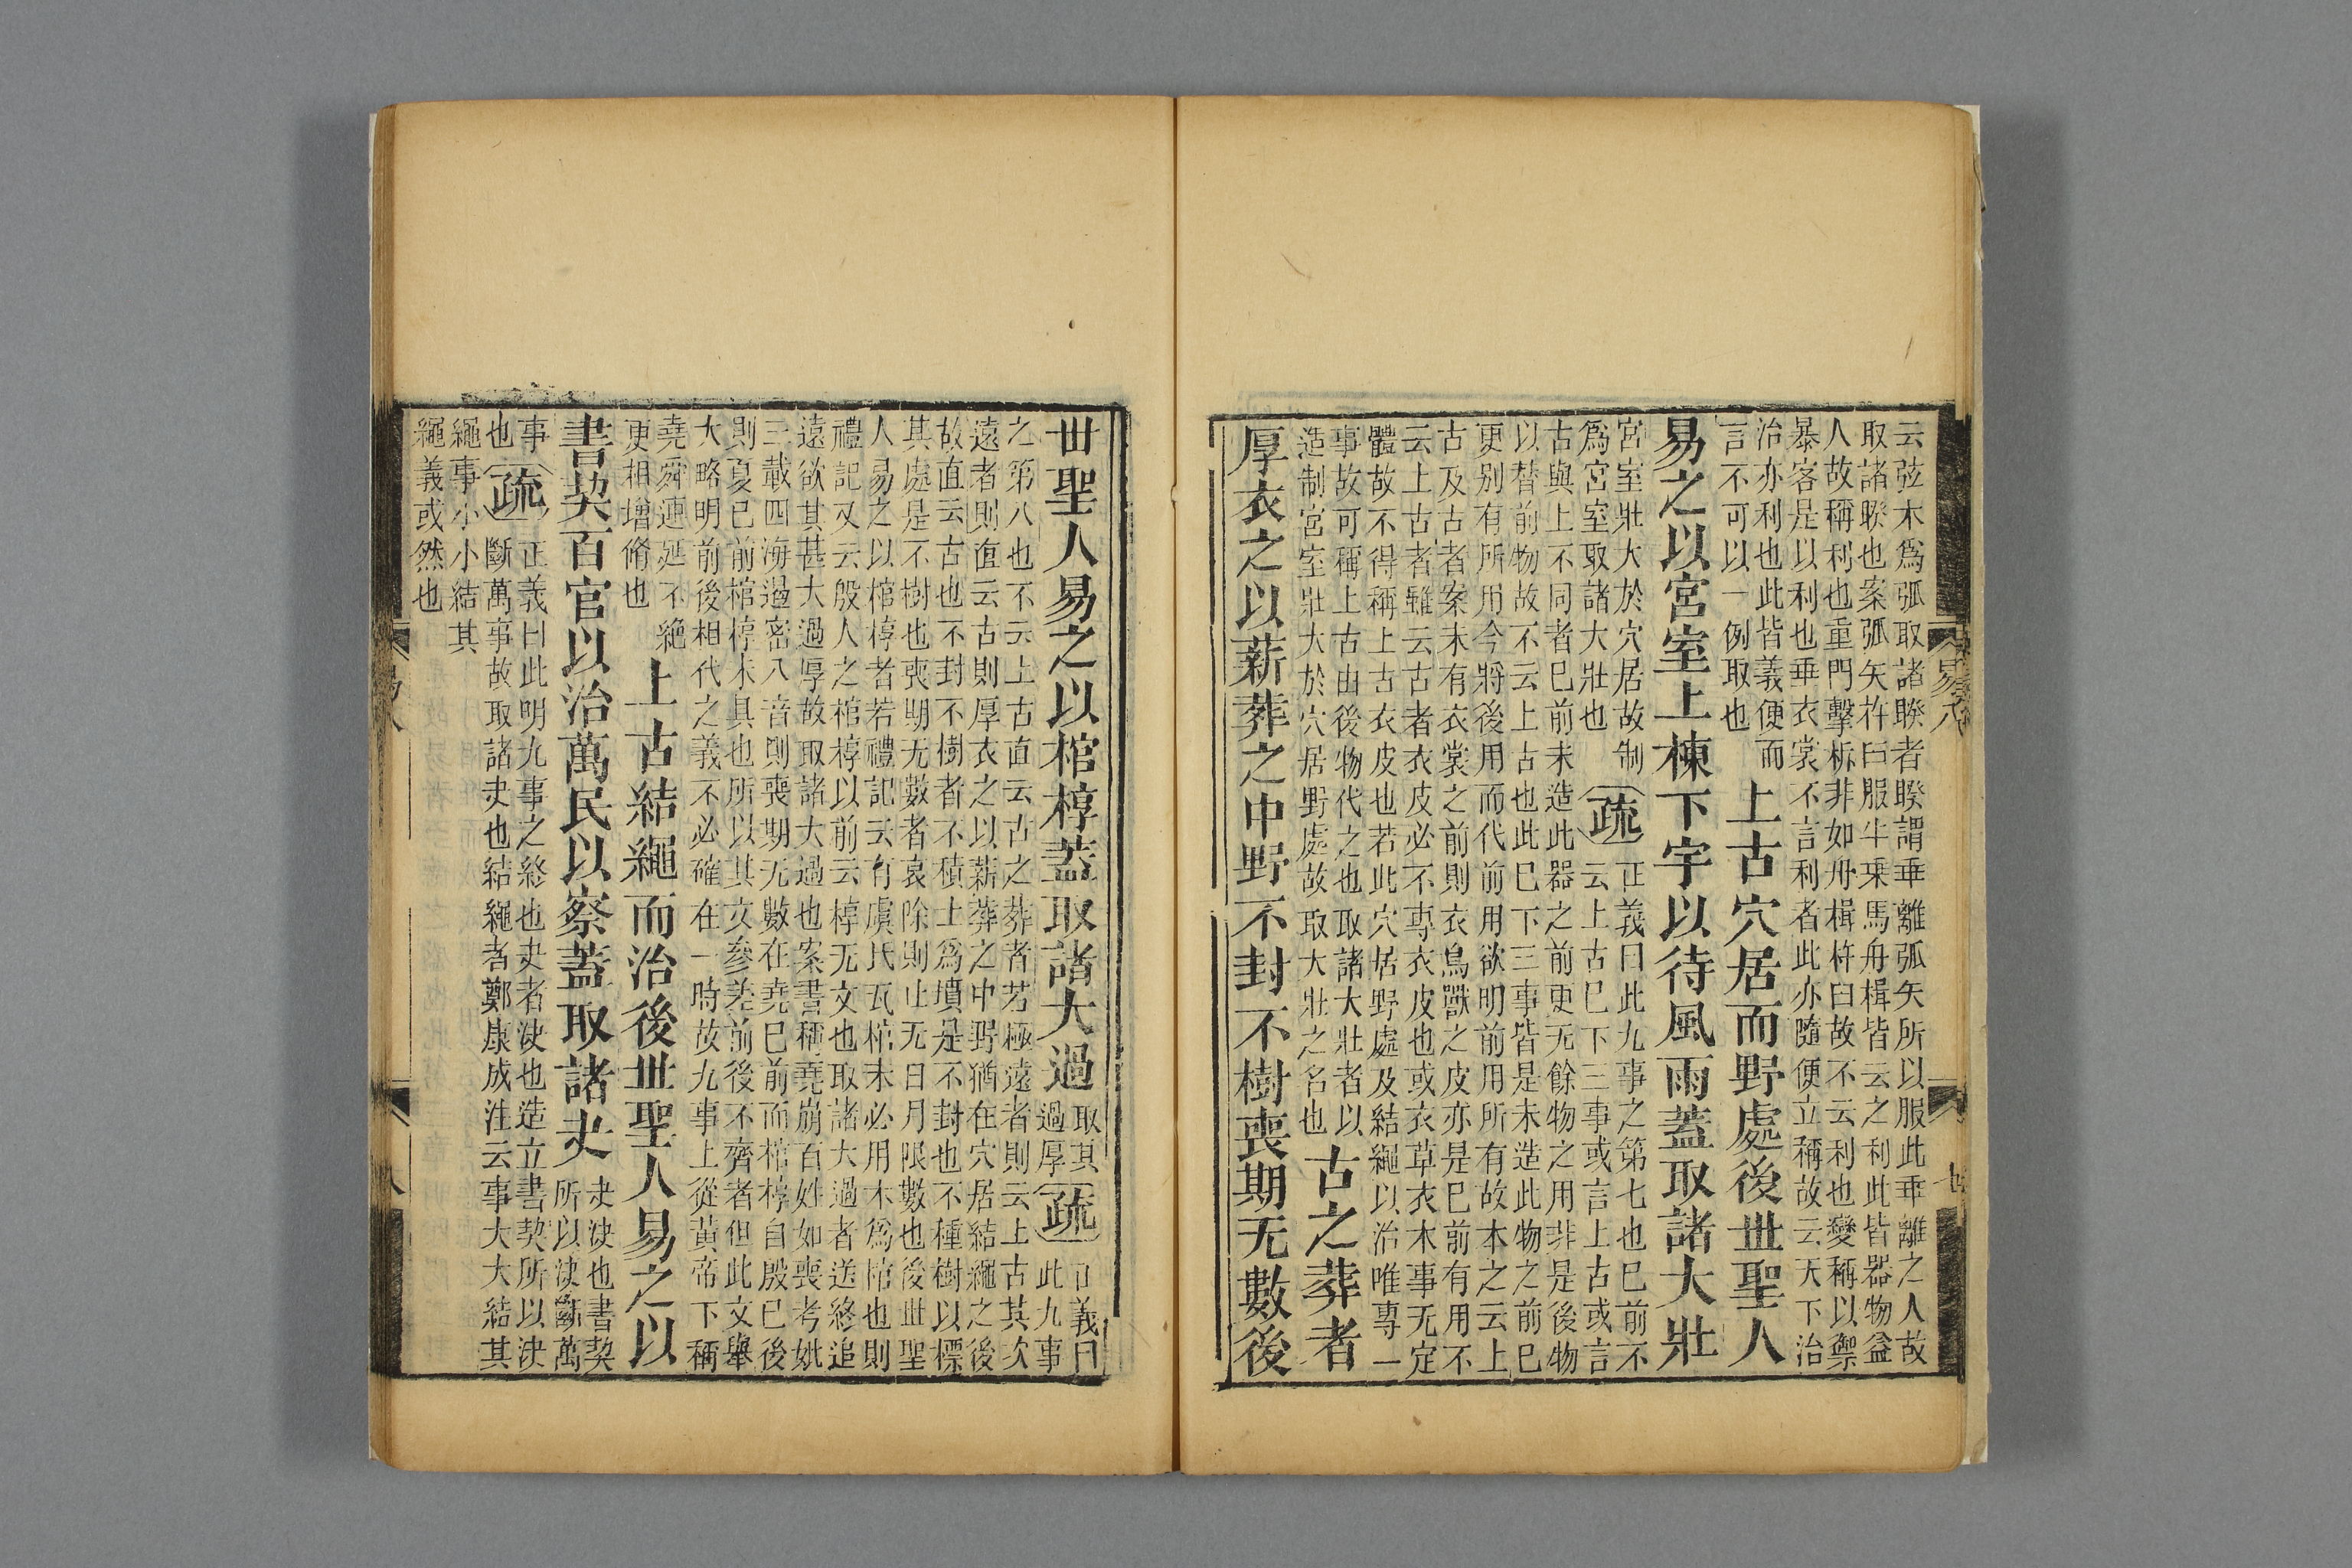 云弦木爲弧取諸睽者睽謂乖離弧矢所以服此乖離之人故
取諸睽也案弧矢杵臼服牛乘馬舟楫皆云之利此皆器物益
人故稱利也重門擊柝非如舟楫杵臼故不云利也變稱以禦
暴客是以利也垂衣裳不言利者此亦隨便立稱故云天下治
治亦利也此皆義便而
言不可以一例取也
上古穴居而野處後丗聖人
易之以宮室上棟下宇以待風雨蓋取諸大壯
宮室壯大於穴居故制
爲宮室取諸大壯也
疏
正義曰此九事之第七也已前不
云上古已下三事或言上古或言
古與上不同者已前未造此器之前更无餘物之用非是後物
以替前物故不云上古也此已下三事皆是未造此物之前已
更別有所用今將後用而代前用欲明前用所有故本之云上
古及古者案未有衣裳之前則衣鳥獸之皮亦是已前有用不
云上古者雖云古者衣皮必不專衣皮也或衣草衣木事无定
體故不得稱上古衣皮也若此穴居野處及結繩以治唯專一
事故可稱上古由後物代之也取諸大壯者以
造制宮室壯大於穴居野處故取大壯之名也
古之葬者
厚衣之以薪葬之中野不封不樹喪期无數後
丗聖人易之以棺椁蓋取諸大過
取其
過厚
疏
正義曰
此九事
之第八也不云上古直云古之葬者若極遠者則云上古其次
遠者則直云古則厚衣之以薪葬之中野猶在穴居結繩之後
故直云古也不封不樹者不積土爲墳是不封也不種樹以標
其處是不樹也喪期无數者哀除則止无日月限數也後丗聖
人易之以棺椁者若禮記云有虞氏瓦棺未必用木爲棺也則
禮記又云殷人之棺椁以前云椁无文也取諸大過者送終追
遠欲其甚大過厚故取諸大過也案書稱堯崩百姓如喪考妣
三載四海遏密八音則喪期无數在堯已前而棺椁自殷已後
則夏已前棺椁未具也所以其文參差前後不齊者但此文舉
大略明前後相代之義不必確在一時故九事上從黃帝下稱
堯舜連延不絶
更相增脩也
上古結繩而治後丗聖人易之以
書契百官以治萬民以察蓋取諸夬
夬決也書契
所以決斷萬
事
也
疏
正義曰此明九事之終也夬者決也造立書契所以決
斷萬事故取諸夬也結繩者鄭康成注云事大大結其
繩事小小結其
繩義或然也
易八
七